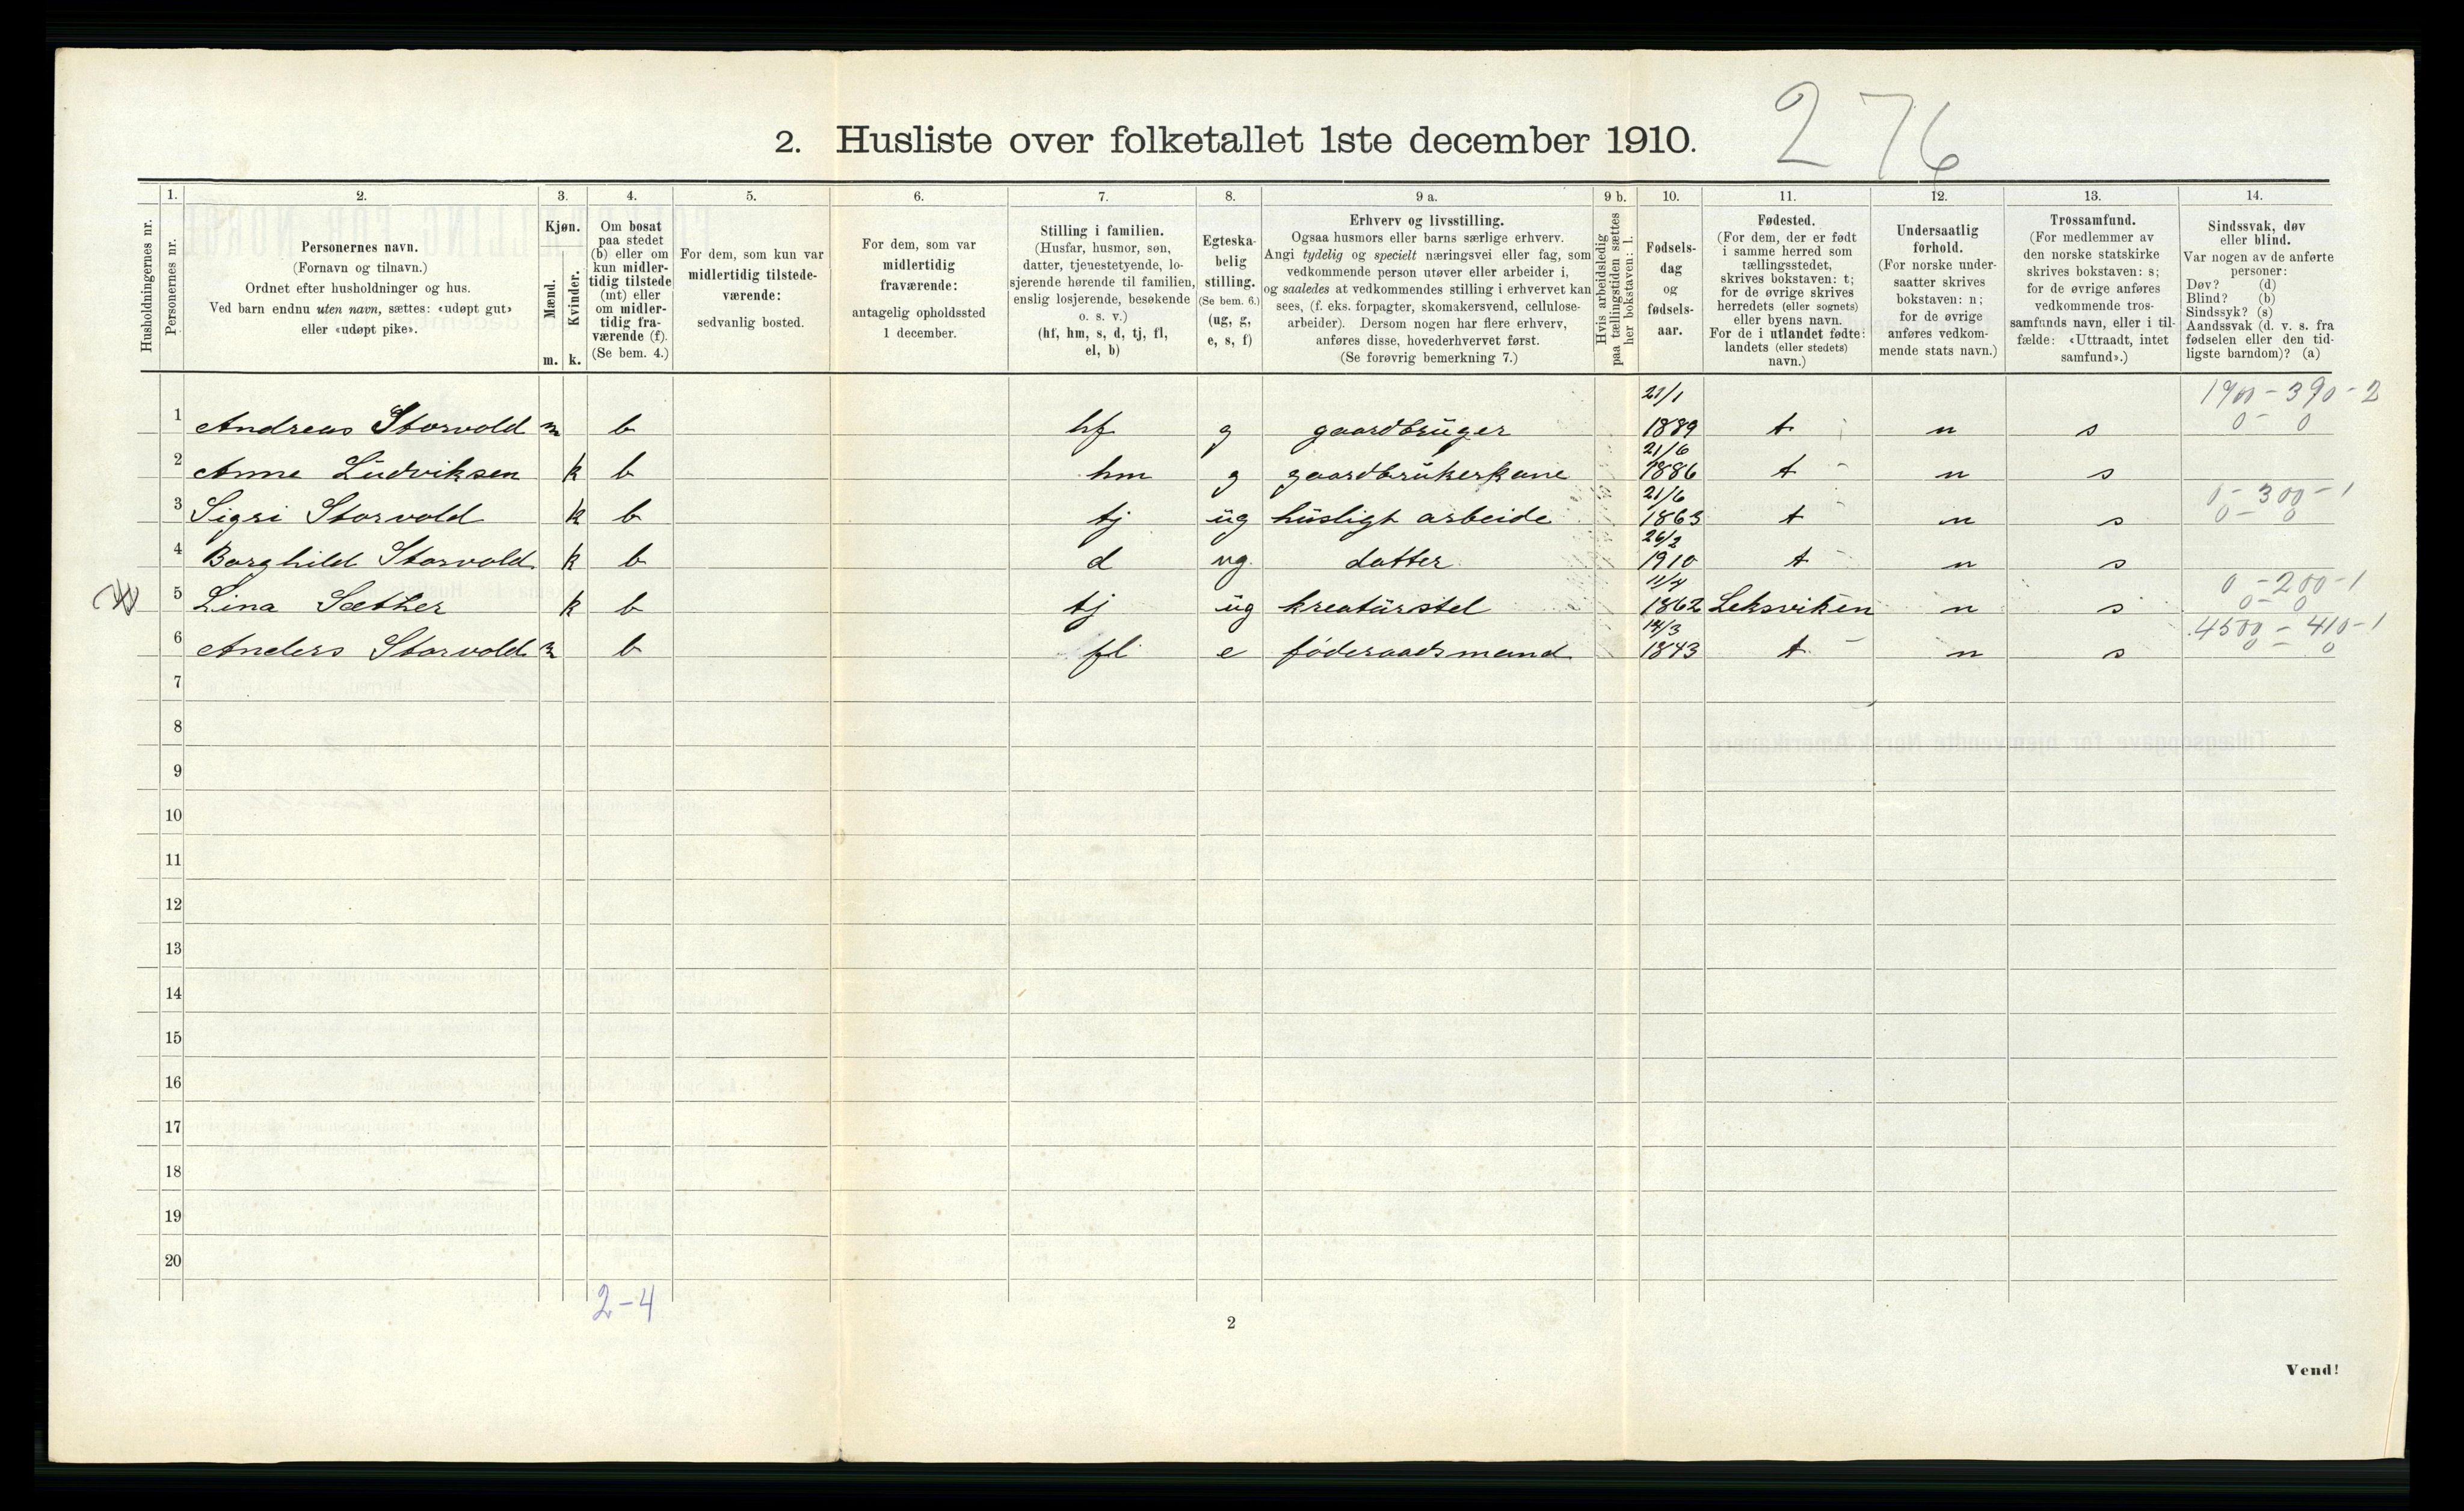 2. Husliste over folketallet 1ste december 1910. 276
1. 2. 3. 4. 5. 6. 7. 8. 9 a. 9 b. 10. 11. 12. 13. 14.
Husholdningernes nr.
Personernes nr.
Personernes navn.
(Fornavn og tilnavn.)
Ordnet efter husholdninger og hus.
Ved barn endnu uten navn, sættes: «udøpt gut»
eller «udøpt pike».
Kjøn.
Mænd.
Kvinder.
m. k.
Om bosat
paa stedet
(b) eller om
kun midler-
tidig tilstede
(mt) eller
om midler-
tidig fra-
værende (f).
(Se bem. 4.)
For dem, som kun var
midlertidig tilstede-
værende:
sedvanlig bosted.
For dem, som var
midlertidig
fraværende:
antagelig opholdssted
1 december.
Stilling i familien.
(Husfar, husmor, søn,
datter, tjenestetyende, lo-
sjerende hørende til familien,
enslig losjerende, besøkende
o. s. v.)
(hf, hm, s, d, tj, fl,
el, b)
Egteska-
belig
stilling.
(Se bem. 6.)
(ug, g,
e, s, f)
Erhverv og livsstilling.
Ogsaa husmors eller barns særlige erhverv.
Angi tydelig og specielt næringsvei eller fag, som
vedkommende person utøver eller arbeider i,
og saaledes at vedkommendes stilling i erhvervet kan
sees, (f. eks. forpagter, skomakersvend, cellulose-
arbeider). Dersom nogen har flere erhverv,
anføres disse, hovederhvervet først.
(Se forøvrig bemerkning 7.)
Hvis arbeidsledig
paa tællingstiden sættes
her bokstaven: l.
Fødsels-
dag
og
fødsels-
aar.
Fødested.
(For dem, der er født
i samme herred som
tællingsstedet,
skrives bokstaven: t;
for de øvrige skrives
herredets (eller sognets)
eller byens navn.
For de i utlandet fødte:
landets (eller stedets)
navn.)
Undersaatlig
forhold.
(For norske under-
saatter skrives
bokstaven: n;
for de øvrige
anføres vedkom-
mende stats navn.)
Trossamfund.
(For medlemmer av
den norske statskirke
skrives bokstaven: s;
for de øvrige anføres
vedkommende tros-
samfunds navn, eller i til-
fælde: «Uttraadt, intet
samfund».)
Sindssvak, døv
eller blind.
Var nogen av de anførte
personer:
Døv? (d)
Blind? (b)
Sindssyk? (s)
Aandssvak (d. v. s. fra
fødselen eller den tid-
ligste barndom)? (a)
21/1 1900-390-2
1 Andreas Storvold m b hf g gaardbrüger 1889 t n s 0- 0
21/6
2 Anne Ludviksen k b hm g gaardbrukerkone 1886 t n s
21/6 0-300-1
3 Sigri Storvold k b tj ug husligt arbeide 1863 t n s 0- 0
26/2
4 Borghild Storvold k b d ug datter 1910 t n s
11/4 0-200-1
5 Lina Sæther k b tj ug kreaturstel 1862 Leksviken n s 0- 0
14/3 4500-410-1
6 Anders Storvold m b fl e föderaadsmand 1843 t n s 0- 0
7
8
9
10
11
12
13
14
15
16
17
18
19
20
2-4
2
Vend!